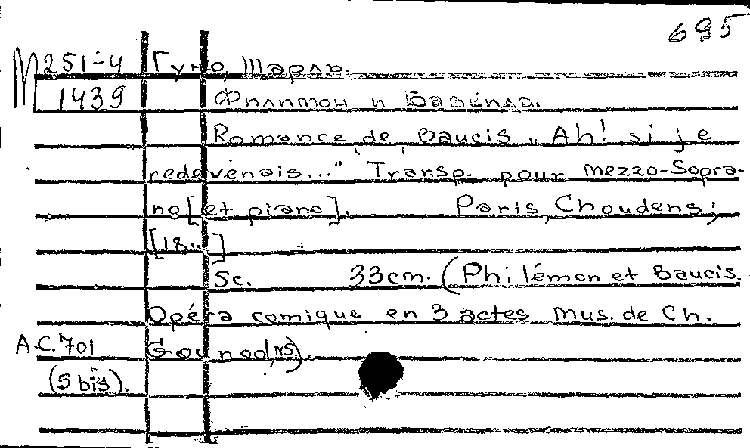 695
М 251-4 Гуно, Шарль.
1439 Филимон и Бавкида.
Romance de Baucis „Ah! si je
redevenais..." Transp. pour mezzo-Sopra-
no [et piano]. Paris, Choudens,
[18..]
5c. 33cm. (Philémon et Baucis.
Opéra comique en 3 actes Mus. de Ch.
A.C. 701 Gounod,
(5 bis).